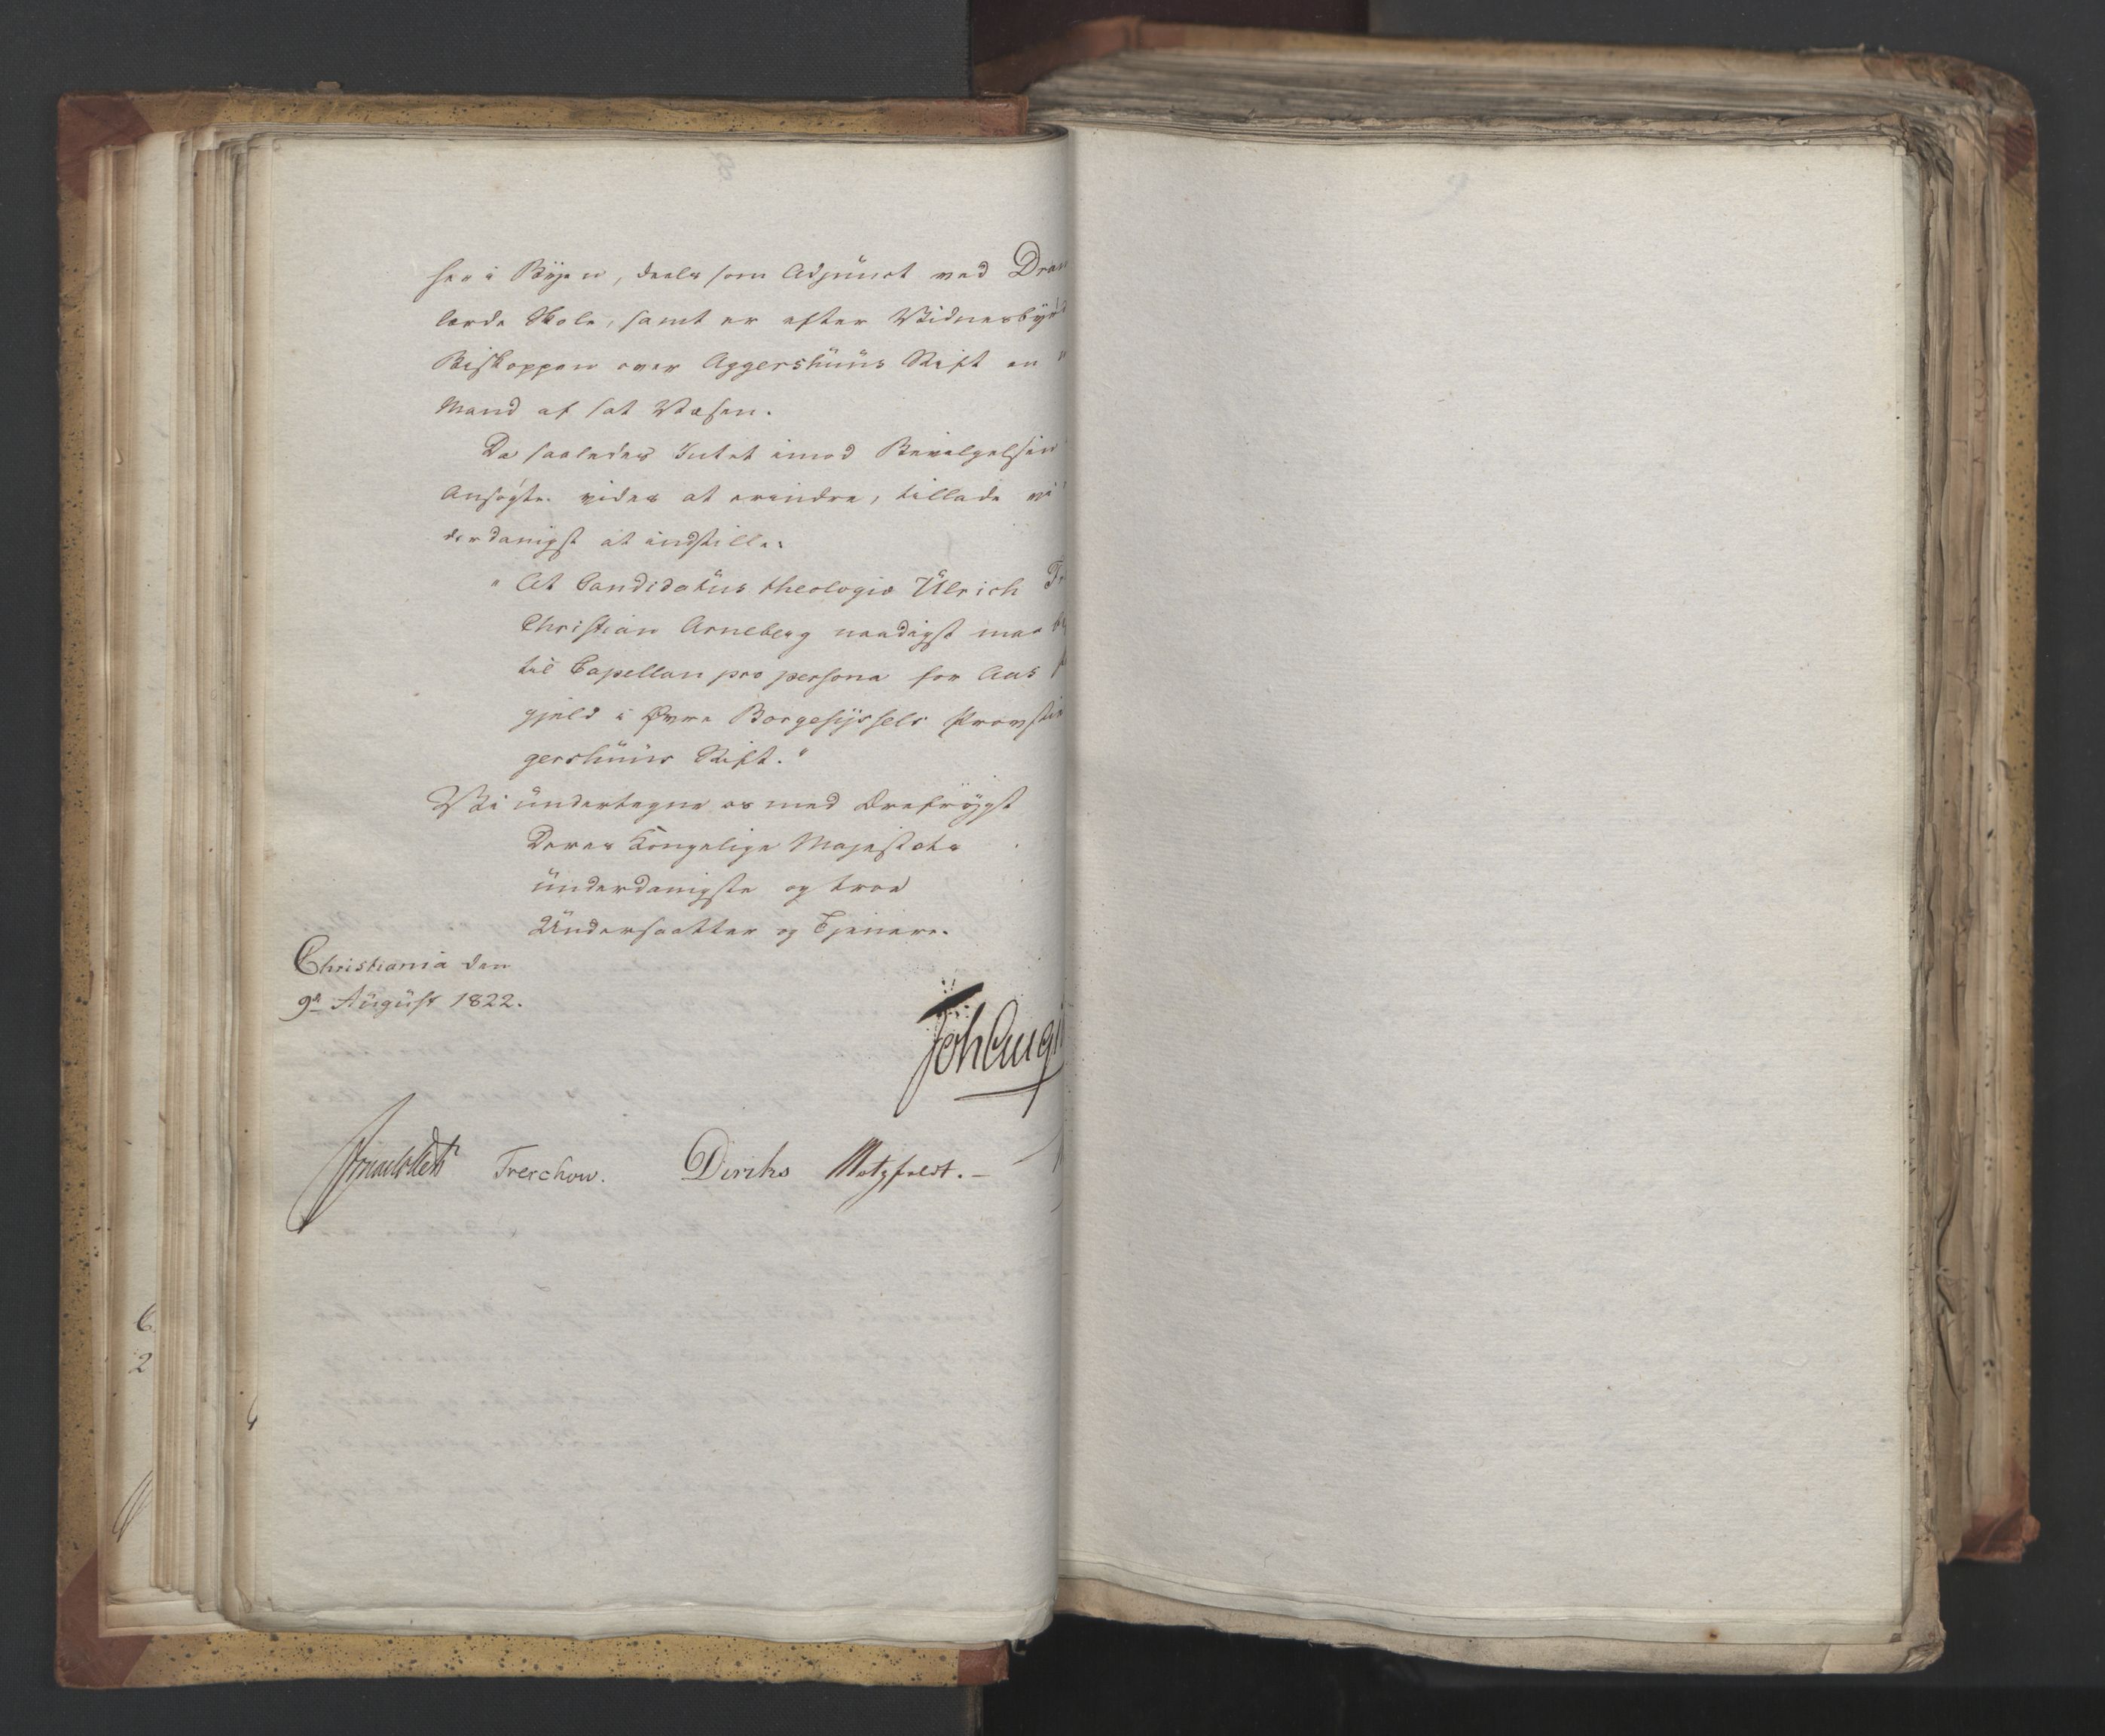 her i Byen, deels som Adjunct ved Dram
lærde Skole, samt er efter Vidnesbyrd
Biskoppen over Aggershuus Stift en
Mand af sat Væsen.
Da saaledes Intet imod Bevilgelsen
Ansøgte vides at erindre, tillade vi
derdanigst at indstille:
"At Candidatus theologiæ Ulrich Fr
Christian Arneberg naadigst maa be
til Capellan pro persona for Aas
gjeld i Øvre Borgesyssels Provstie
gershuus Stift."
Vi undertegne os med Ærefrygt
Deres Kongelige Majestæts
underdanigste og troe
Undersaatter og Tjenere.
Christiania den
9de August 1822.
Joh Aug
Treschow. Diriks Motzfeldt.
6
2